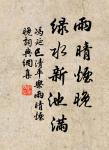 雨晴烟晚
绿水新池满
冯延巳清平乐雨晴烟
晚词典网集